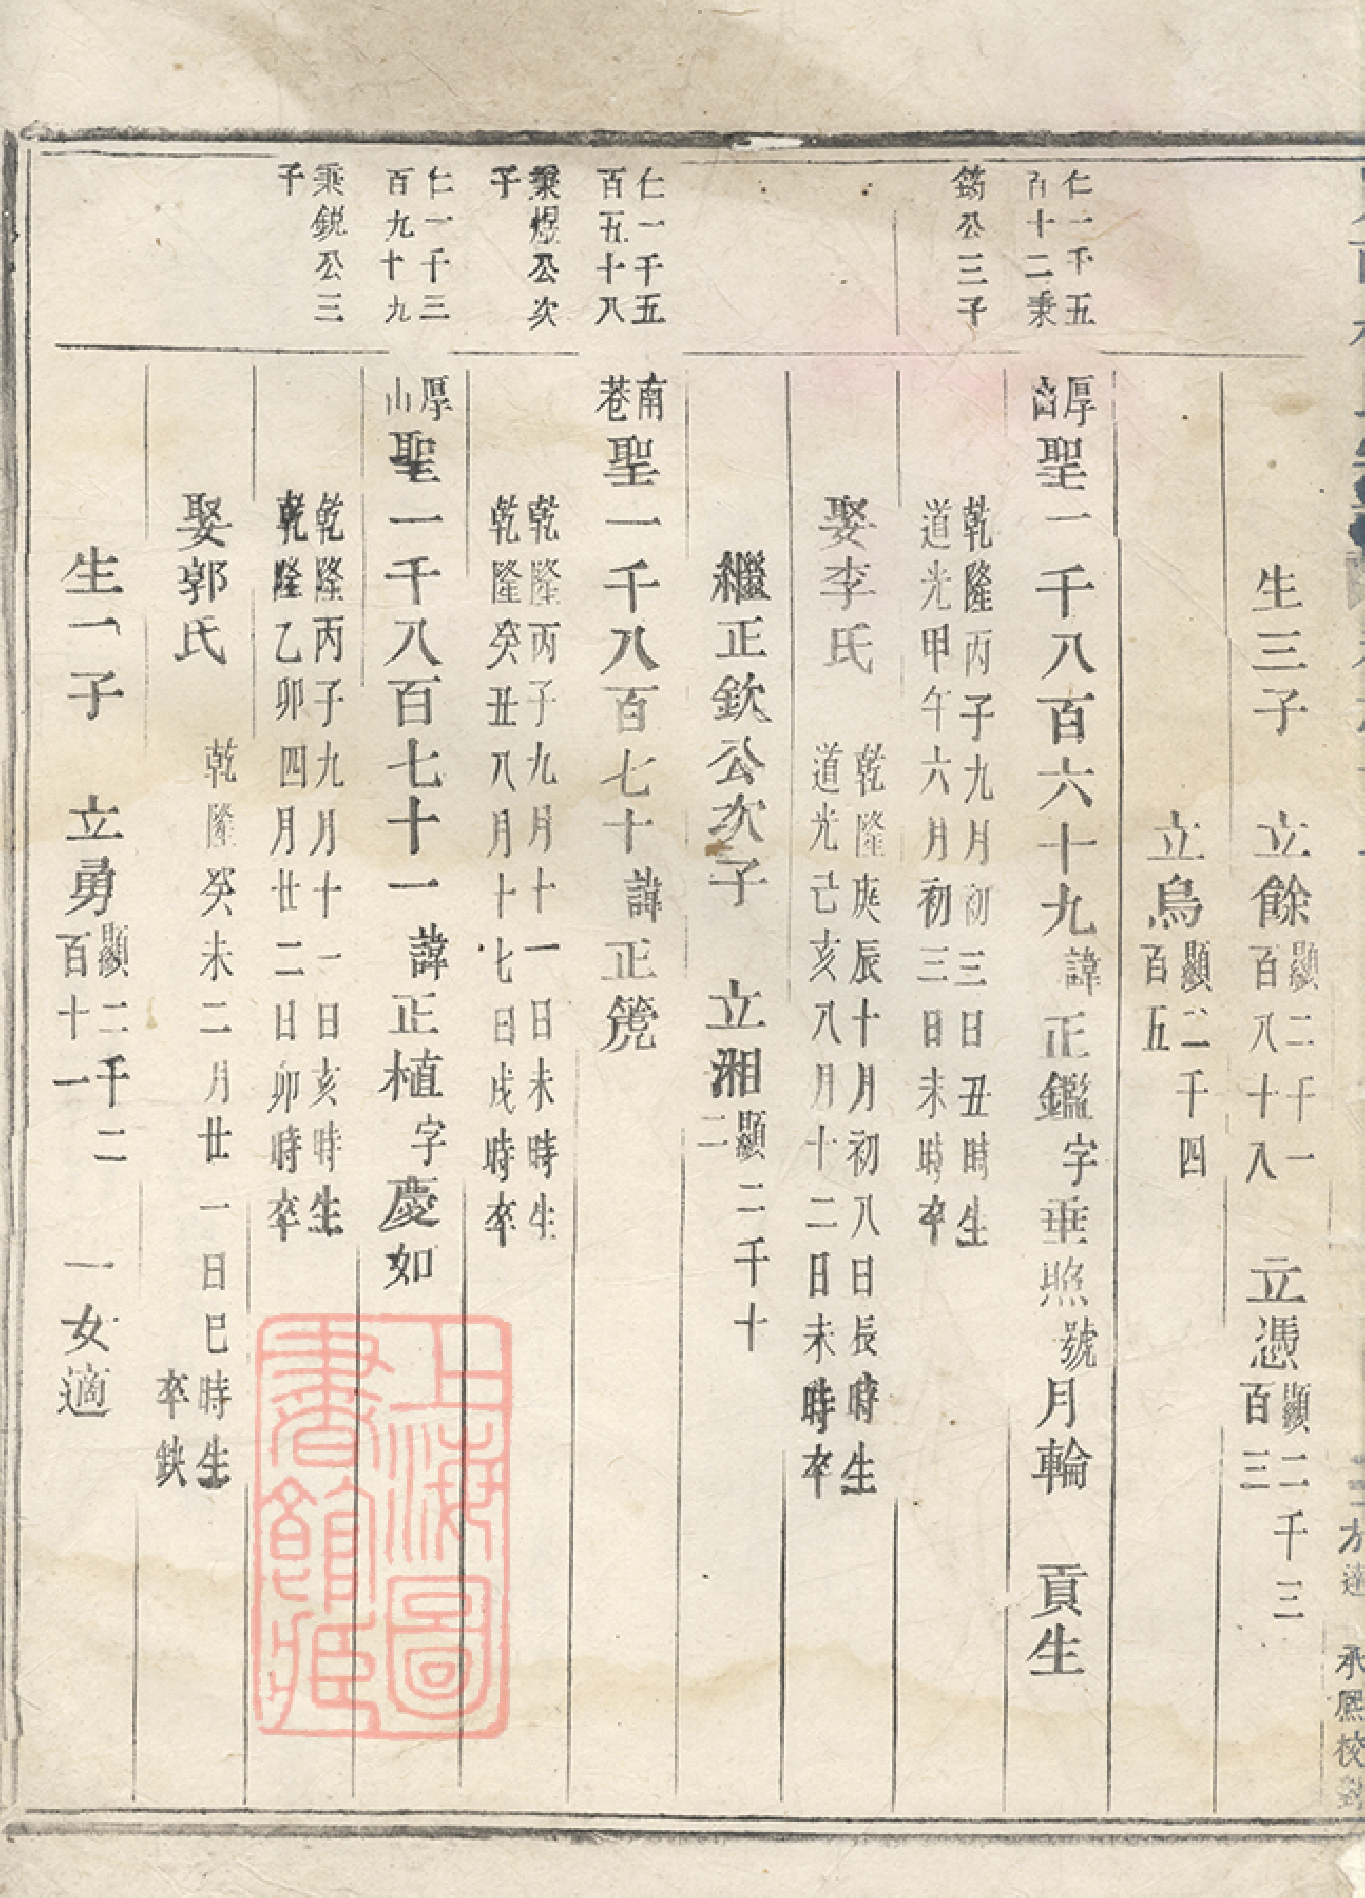 生三子　立餘顯二千一百八十八　立憑顯二千三百三
立鳥顯二千四百五
仁一千五百十二秉
鎊公三子
厚山聖一千八百六十九諱正鑑字垂照號月輪　貢生
乾隆丙子九月初三日丑時生
道光甲午六月初三日未時卒
娶李氏
乾隆庚辰十月初八日長時生
道光己亥八月十二日未時卒
繼正欽公次子　立湘顯二千十二
仁一千五百五十八
南巷聖一千八百七十諱正箎
秉煜公次子
乾隆丙子九月十一日未時生
乾隆癸丑八月十七日戌時卒
仁一千三百九十九
厚山聖一千八百七十一諱正植字慶如
秉鋭公三子
乾隆丙子九月十一日亥時生
乾隆乙卯四月廿二日卯時卒
娶郭氏
乾隆癸未二月廿一日巳時生
卒缺
生一子　立勇顯二千二百十一　一女適
上海圖書館藏
承熙校對